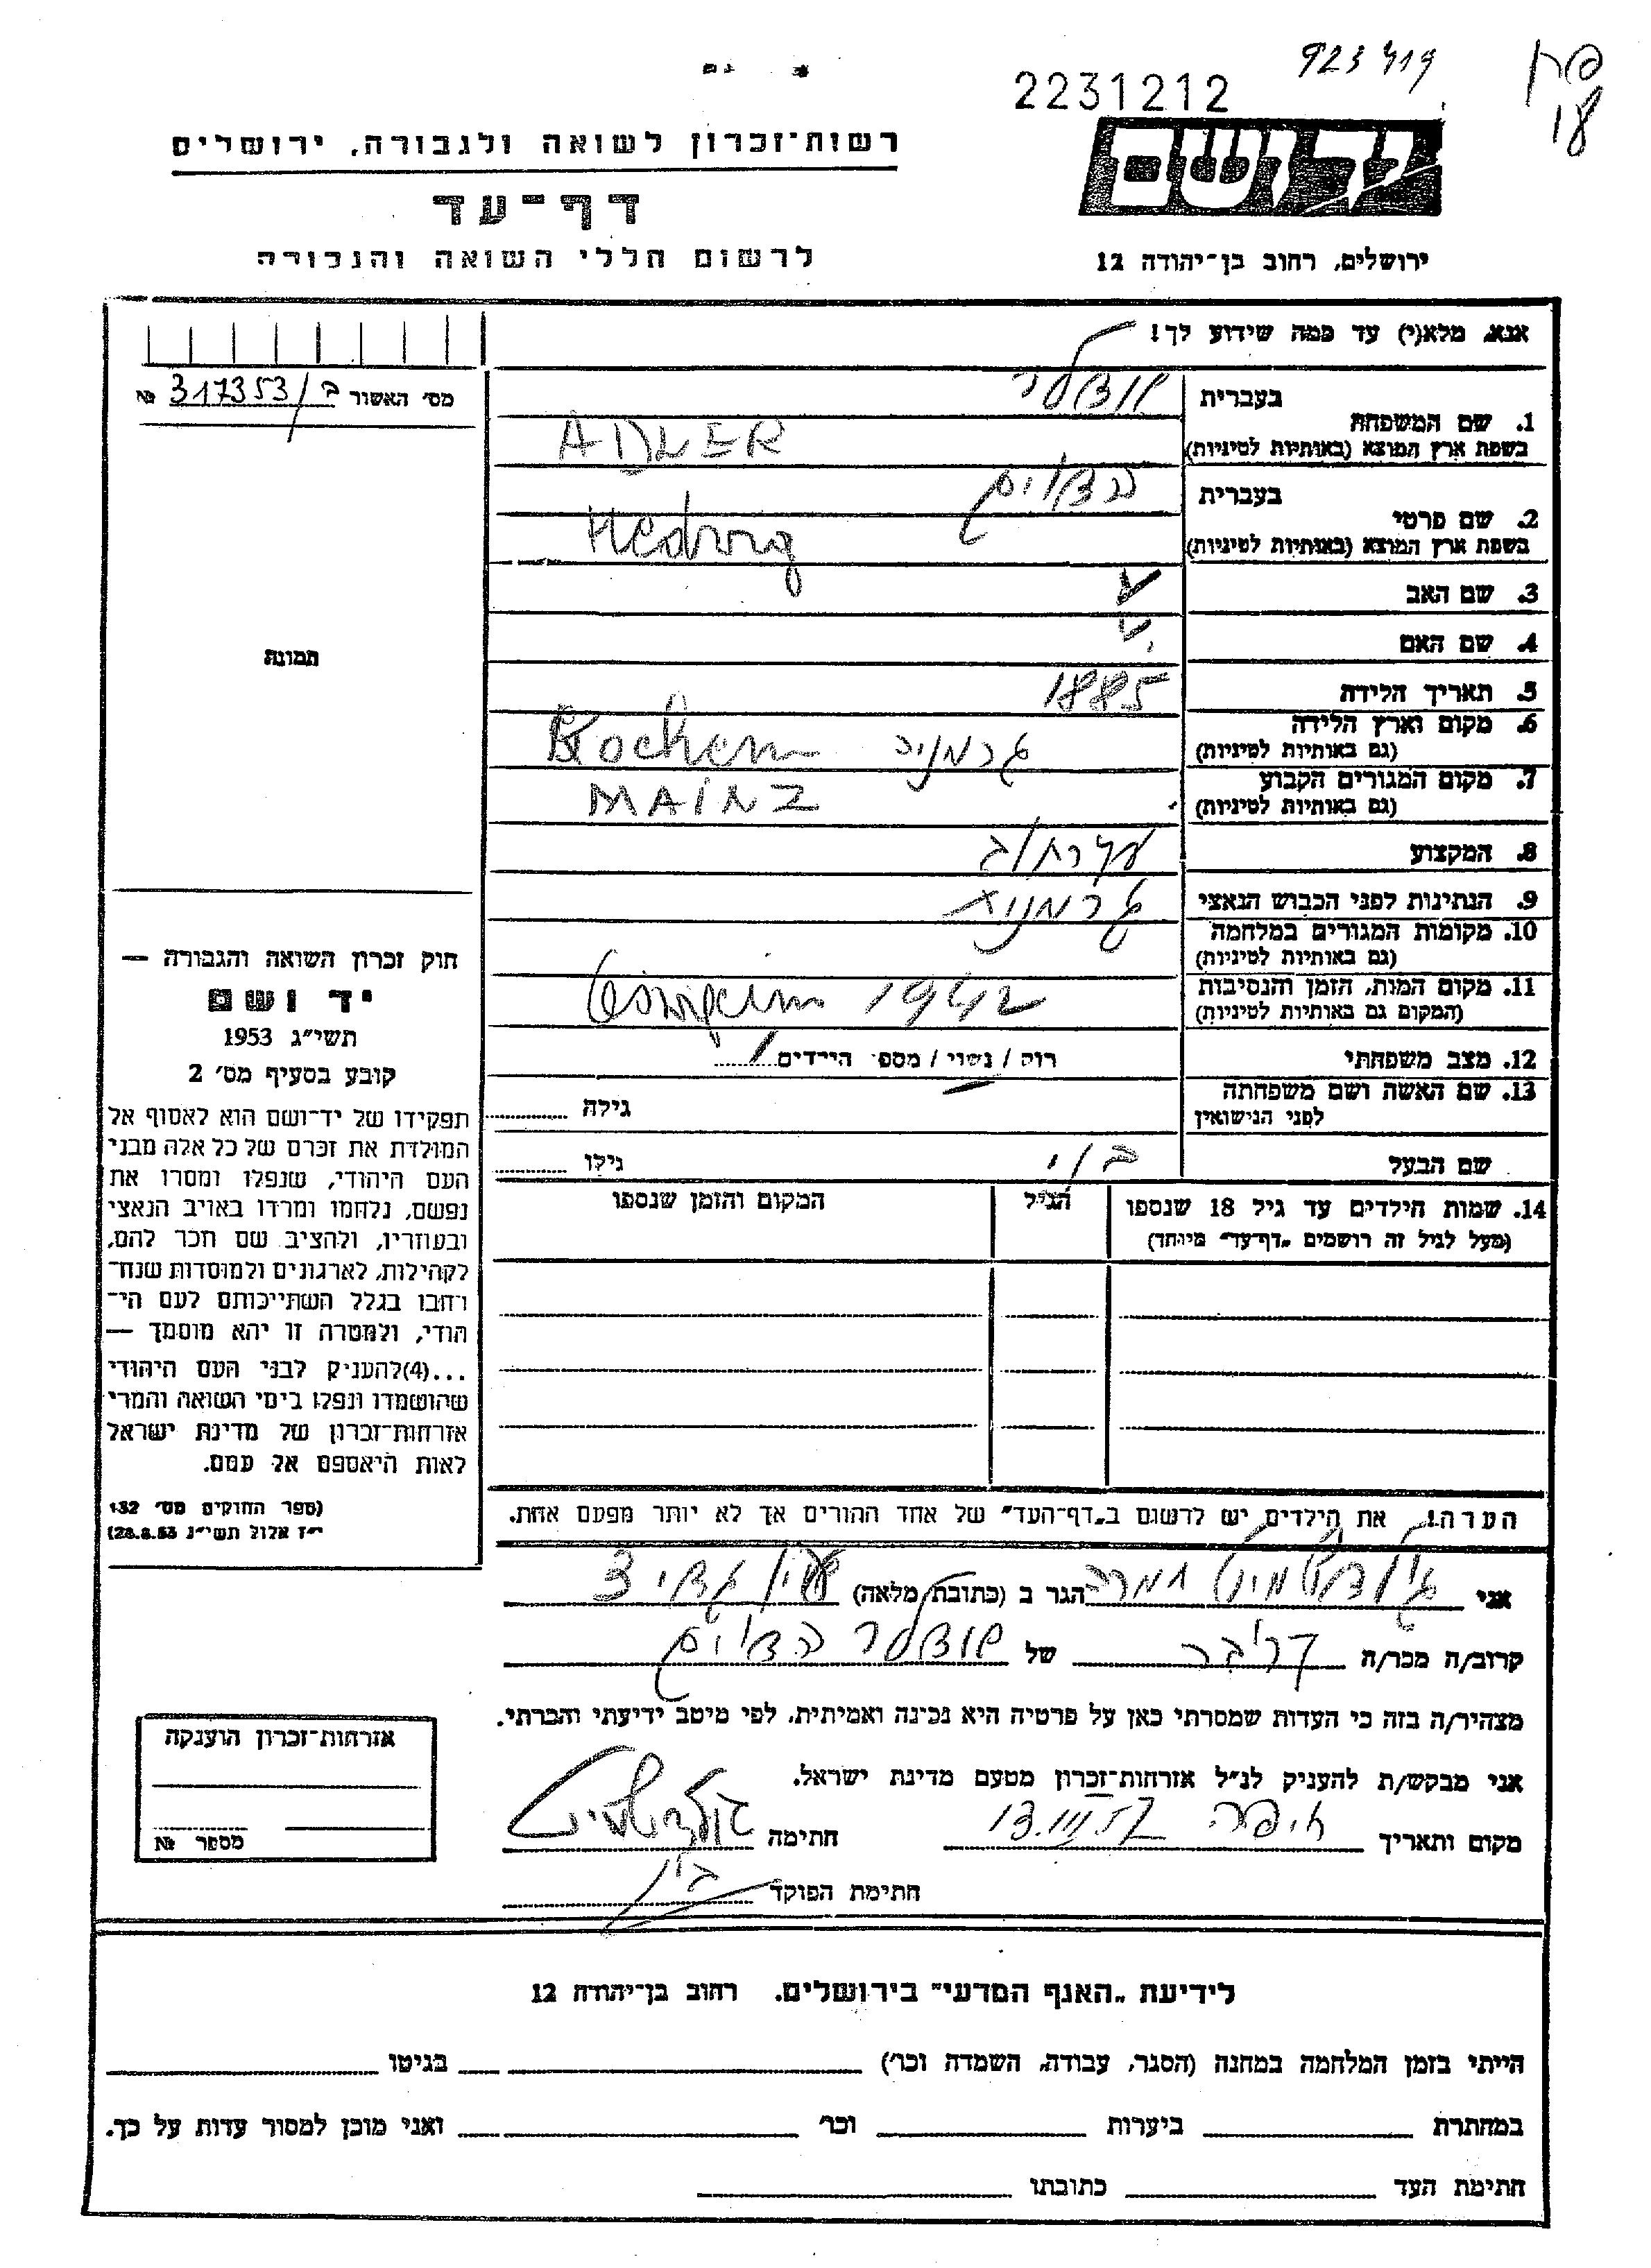 923419
פרן
18
2231212
רשות־זכרון לשואה ולגבורה, ירושלים
יד ושם
דף־עד
לרשום חללי השואה והגבורה
ירושלים, רחוב בן־יהודה 12
אנא, מלא(י) עד כמה שידוע לך!
מס׳ האשור ב/317353 №
1. שם המשפחה
בעברית אדלר
בשפת ארץ המוצא (באותיות לטיניות) ADLER
2. שם פרטי
בעברית הדויג
בשפת ארץ המוצא (באותיות לטיניות) Hedwig
3. שם האב
4. שם האם
5. תאריך הלידה 1885
6. מקום וארץ הלידה
(גם באותיות לטיניות) גרמניה Kochem
7. מקום המגורים הקבוע
(גם באותיות לטיניות) MAINZ
8. המקצוע עקרת/ב
9. הנתינות לפני הכבוש הנאצי גרמנית
10. מקומות המגורים במלחמה
(גם באותיות לטיניות)
11. מקום המות, הזמן והנסיבות
(המקום גם באותיות לטיניות) 1942
12. מצב משפחתי רוק / נשוי / מספר הילדים 1
13. שם האשה ושם משפחתה
לפני הנישואין
גילה
שם הבעל
גילו
14. שמות הילדים עד גיל 18 שנספו
(מעל לגיל זה רושמים „דף־עד" מיוחד)
הגיל
המקום והזמן שנספו
תמונה
חוק זכרון השואה והגבורה —
יד ושם
תשי״ג 1953
קובע בסעיף מס׳ 2
תפקידו של יד־ושם הוא לאסוף אל
המולדת את זכרם של כל אלה מבני
העם היהודי, שנפלו ומסרו את
נפשם, נלחמו ומרדו באויב הנאצי
ובעוזריו, ולהציב שם וזכר להם,
לקהילות, לארגונים ולמוסדות שנח־
רבו בגלל השתייכותם לעם הי־
הודי, ולמטרה זו יהא מוסמך —
...(4)להעניק לבני העם היהודי
שהושמדו ונפלו בימי השואה והמרי
אזרחות־זכרון של מדינת ישראל
לאות היאספם אל עמם.
(ספר החוקים מס׳ 132
י״ז אלול תשי״ג 28.8.53)
הערה! את הילדים יש לרשום ב„דף־העד" של אחד ההורים אך לא יותר מפעם אחת.
אני גולדשמידט הגר ב (כתובת מלאה)
קרוב/ה מכר/ה של אדלר הדויג
מצהיר/ה בזה כי העדות שמסרתי כאן על פרטיה היא נכונה ואמיתית, לפי מיטב ידיעתי והכרתי.
אני מבקש/ת להעניק לנ״ל אזרחות־זכרון מטעם מדינת ישראל.
מקום ותאריך חיפה 13.III.57 חתימה
חתימת הפוקד
אזרחות־זכרון הוענקה
מספר №
לידיעת „האגף המדעי" בירושלים. רחוב בן־יהודה 12
הייתי בזמן המלחמה במחנה (הסגר, עבודה, השמדה וכו׳) בגיטו
במחתרת ביערות וכו׳ ואני מוכן למסור עדות על כך.
חתימת העד כתובתו